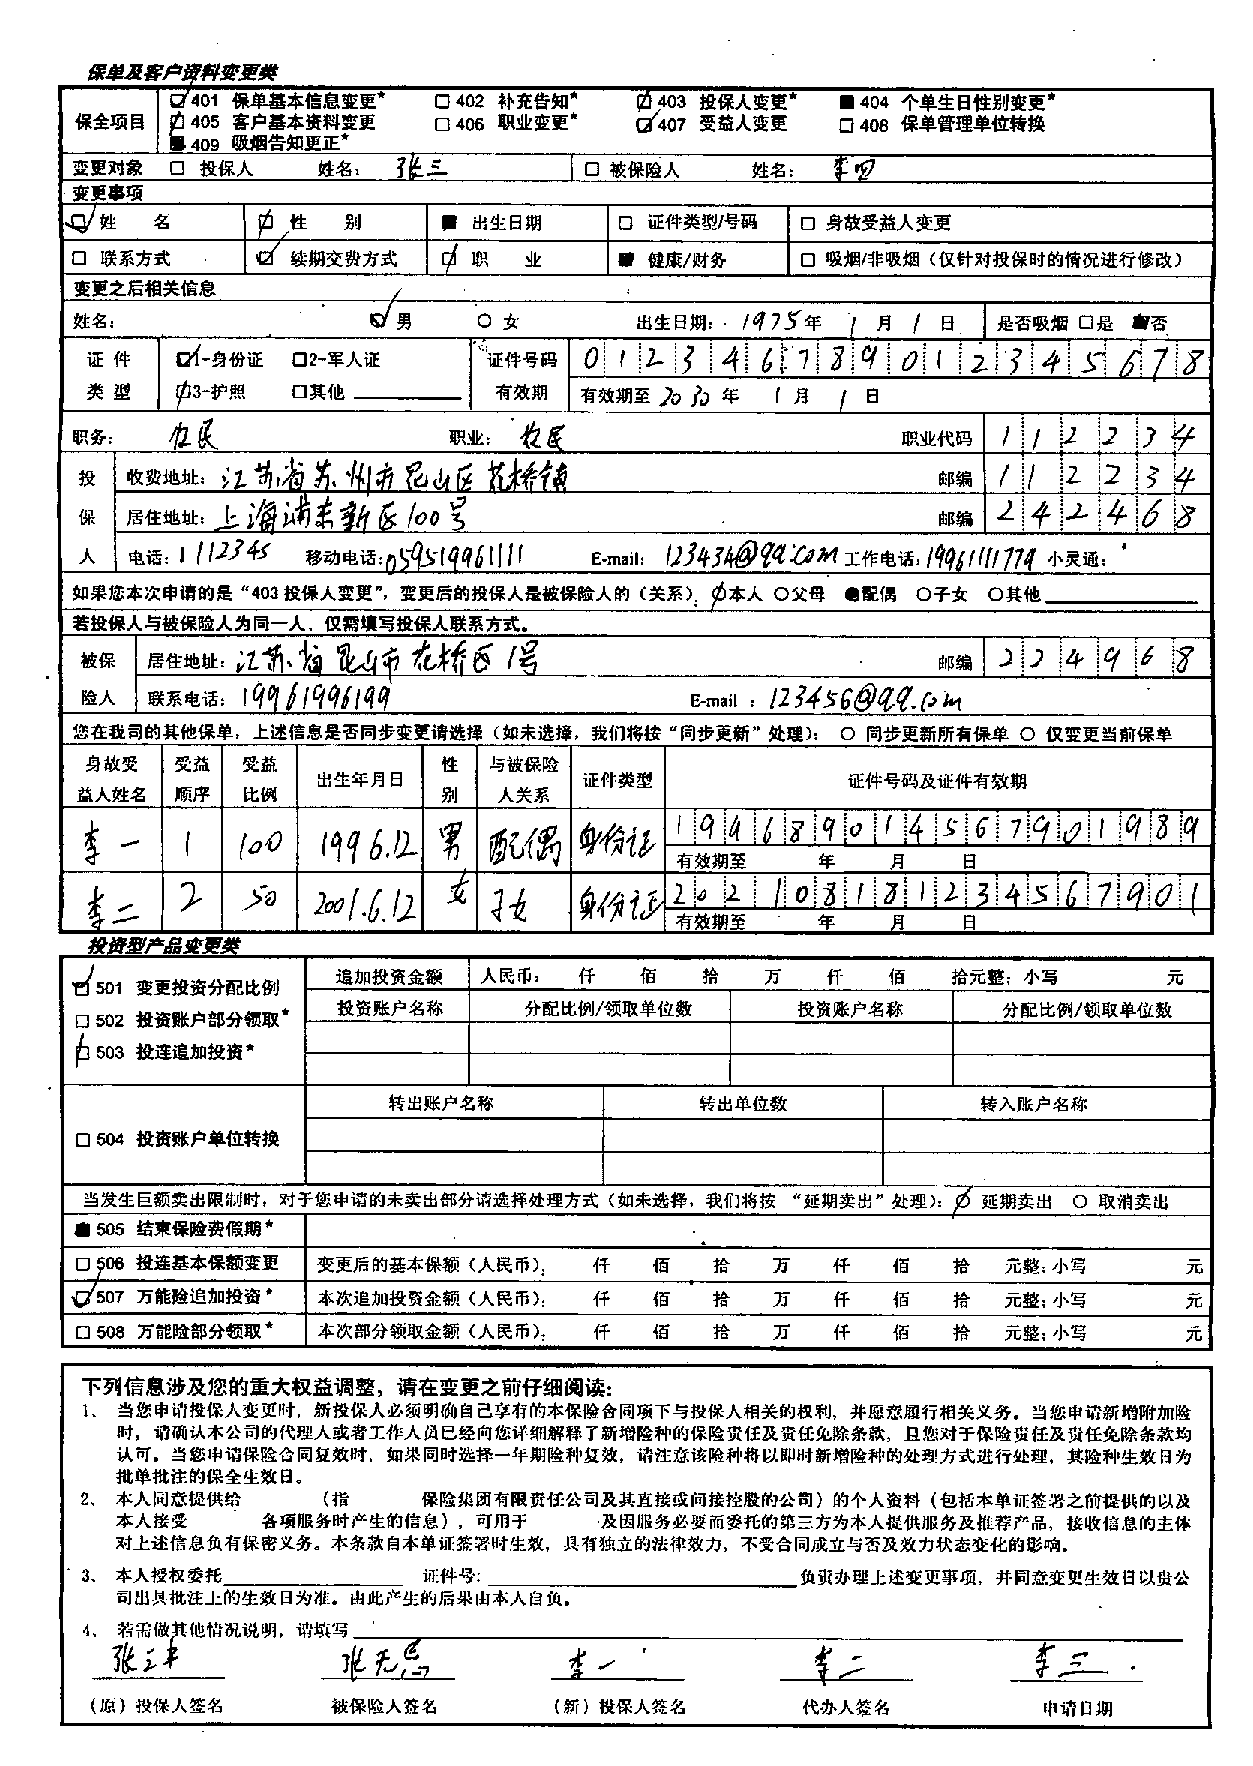 保单及客户资料变更类
保全项目
401 保单基本信息变更* 402 补充告知* 403 投保人变更* 404 个单生日性别变更*
405 客户基本资料变更 406 职业变更* 407 受益人变更 408 保单管理单位转换
409 吸烟告知更正*
变更对象 投保人 姓名: 张三 被保险人 姓名: 李四
变更事项
姓 名 性 别 出生日期 证件类型/号码 身故受益人变更
联系方式 续期交费方式 职 业 健康/财务 吸烟/非吸烟(仅针对投保时的情况进行修改)
变更之后相关信息
姓名: 男 女 出生日期: 1975年 1月 1日 是否吸烟 是 否
证 件 1-身份证 2-军人证 证件号码 012346789012345678
类 型 3-护照 其他 有效期 有效期至 2030年 1月 1日
职务: 农民 职业: 农民 职业代码 112234
投 收费地址: 江苏省苏州市昆山区花桥镇 邮编 112234
保 居住地址: 上海浦东新区100号 邮编 242468
人 电话: 1112345 移动电话: 059519961111 E-mail: 123434@qq.com 工作电话: 19961111779 小灵通:
如果您本次申请的是“403 投保人变更”, 变更后的投保人是被保险人的(关系): 本人 父母 配偶 子女 其他
若投保人与被保险人为同一人, 仅需填写投保人联系方式。
被保 居住地址: 江苏省昆山市花桥区1号 邮编 224968
险人 联系电话: 19961996199 E-mail : 123456@qq.com
您在我司的其他保单, 上述信息是否同步变更请选择(如未选择, 我们将按“同步更新”处理): 同步更新所有保单 仅变更当前保单
身故受益人姓名 受益顺序 受益比例 出生年月日 性别 与被保险人关系 证件类型 证件号码及证件有效期
李一 1 100 1996.12 男 配偶 身份证 199689014567901989
有效期至 年 月 日
李二 2 50 2001.6.12 女 子女 身份证 202108181234567901
有效期至 年 月 日
投资型产品变更类
501 变更投资分配比例 追加投资金额 人民币: 仟 佰 拾 万 仟 佰 拾元整; 小写 元
502 投资账户部分领取* 投资账户名称 分配比例/领取单位数 投资账户名称 分配比例/领取单位数
503 投连追加投资*
转出账户名称 转出单位数 转入账户名称
504 投资账户单位转换
当发生巨额卖出限制时, 对于您申请的未卖出部分请选择处理方式(如未选择, 我们将按 “延期卖出”处理): 延期卖出 取消卖出
505 结束保险费假期*
506 投连基本保额变更 变更后的基本保额(人民币): 仟 佰 拾 万 仟 佰 拾 元整; 小写 元
507 万能险追加投资* 本次追加投资金额(人民币): 仟 佰 拾 万 仟 佰 拾 元整; 小写 元
508 万能险部分领取* 本次部分领取金额(人民币): 仟 佰 拾 万 仟 佰 拾 元整; 小写 元
下列信息涉及您的重大权益调整, 请在变更之前仔细阅读:
1、 当您申请投保人变更时, 新投保人必须明确自己享有的本保险合同项下与投保人相关的权利, 并愿意履行相关义务。当您申请新增附加险
时, 请确认本公司的代理人或者工作人员已经向您详细解释了新增险种的保险责任及责任免除条款, 且您对于保险责任及责任免除条款均
认可。当您申请保险合同复效时, 如果同时选择一年期险种复效, 请注意该险种将以即时新增险种的处理方式进行处理, 其险种生效日为
批单批注的保全生效日。
2、 本人同意提供给 (指 保险集团有限责任公司及其直接或间接控股的公司)的个人资料(包括本单证签署之前提供的以及
本人接受 各项服务时产生的信息), 可用于 及因服务必要而委托的第三方为本人提供服务及推荐产品, 接收信息的主体
对上述信息负有保密义务。本条款自本单证签署时生效, 具有独立的法律效力, 不受合同成立与否及效力状态变化的影响。
3、 本人授权委托 证件号: 负责办理上述变更事项, 并同意变更生效日以贵公
司出具批注上的生效日为准。由此产生的后果由本人自负。
4、 若需做其他情况说明, 请填写
张三丰 张无忌 李一 李二 李三
(原)投保人签名 被保险人签名 (新)投保人签名 代办人签名 申请日期